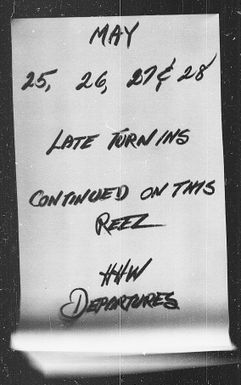 MAY
25, 26, 27 & 28
LATE TURN INS
CONTINUED ON THIS
REEL
HHW
DEPARTURES